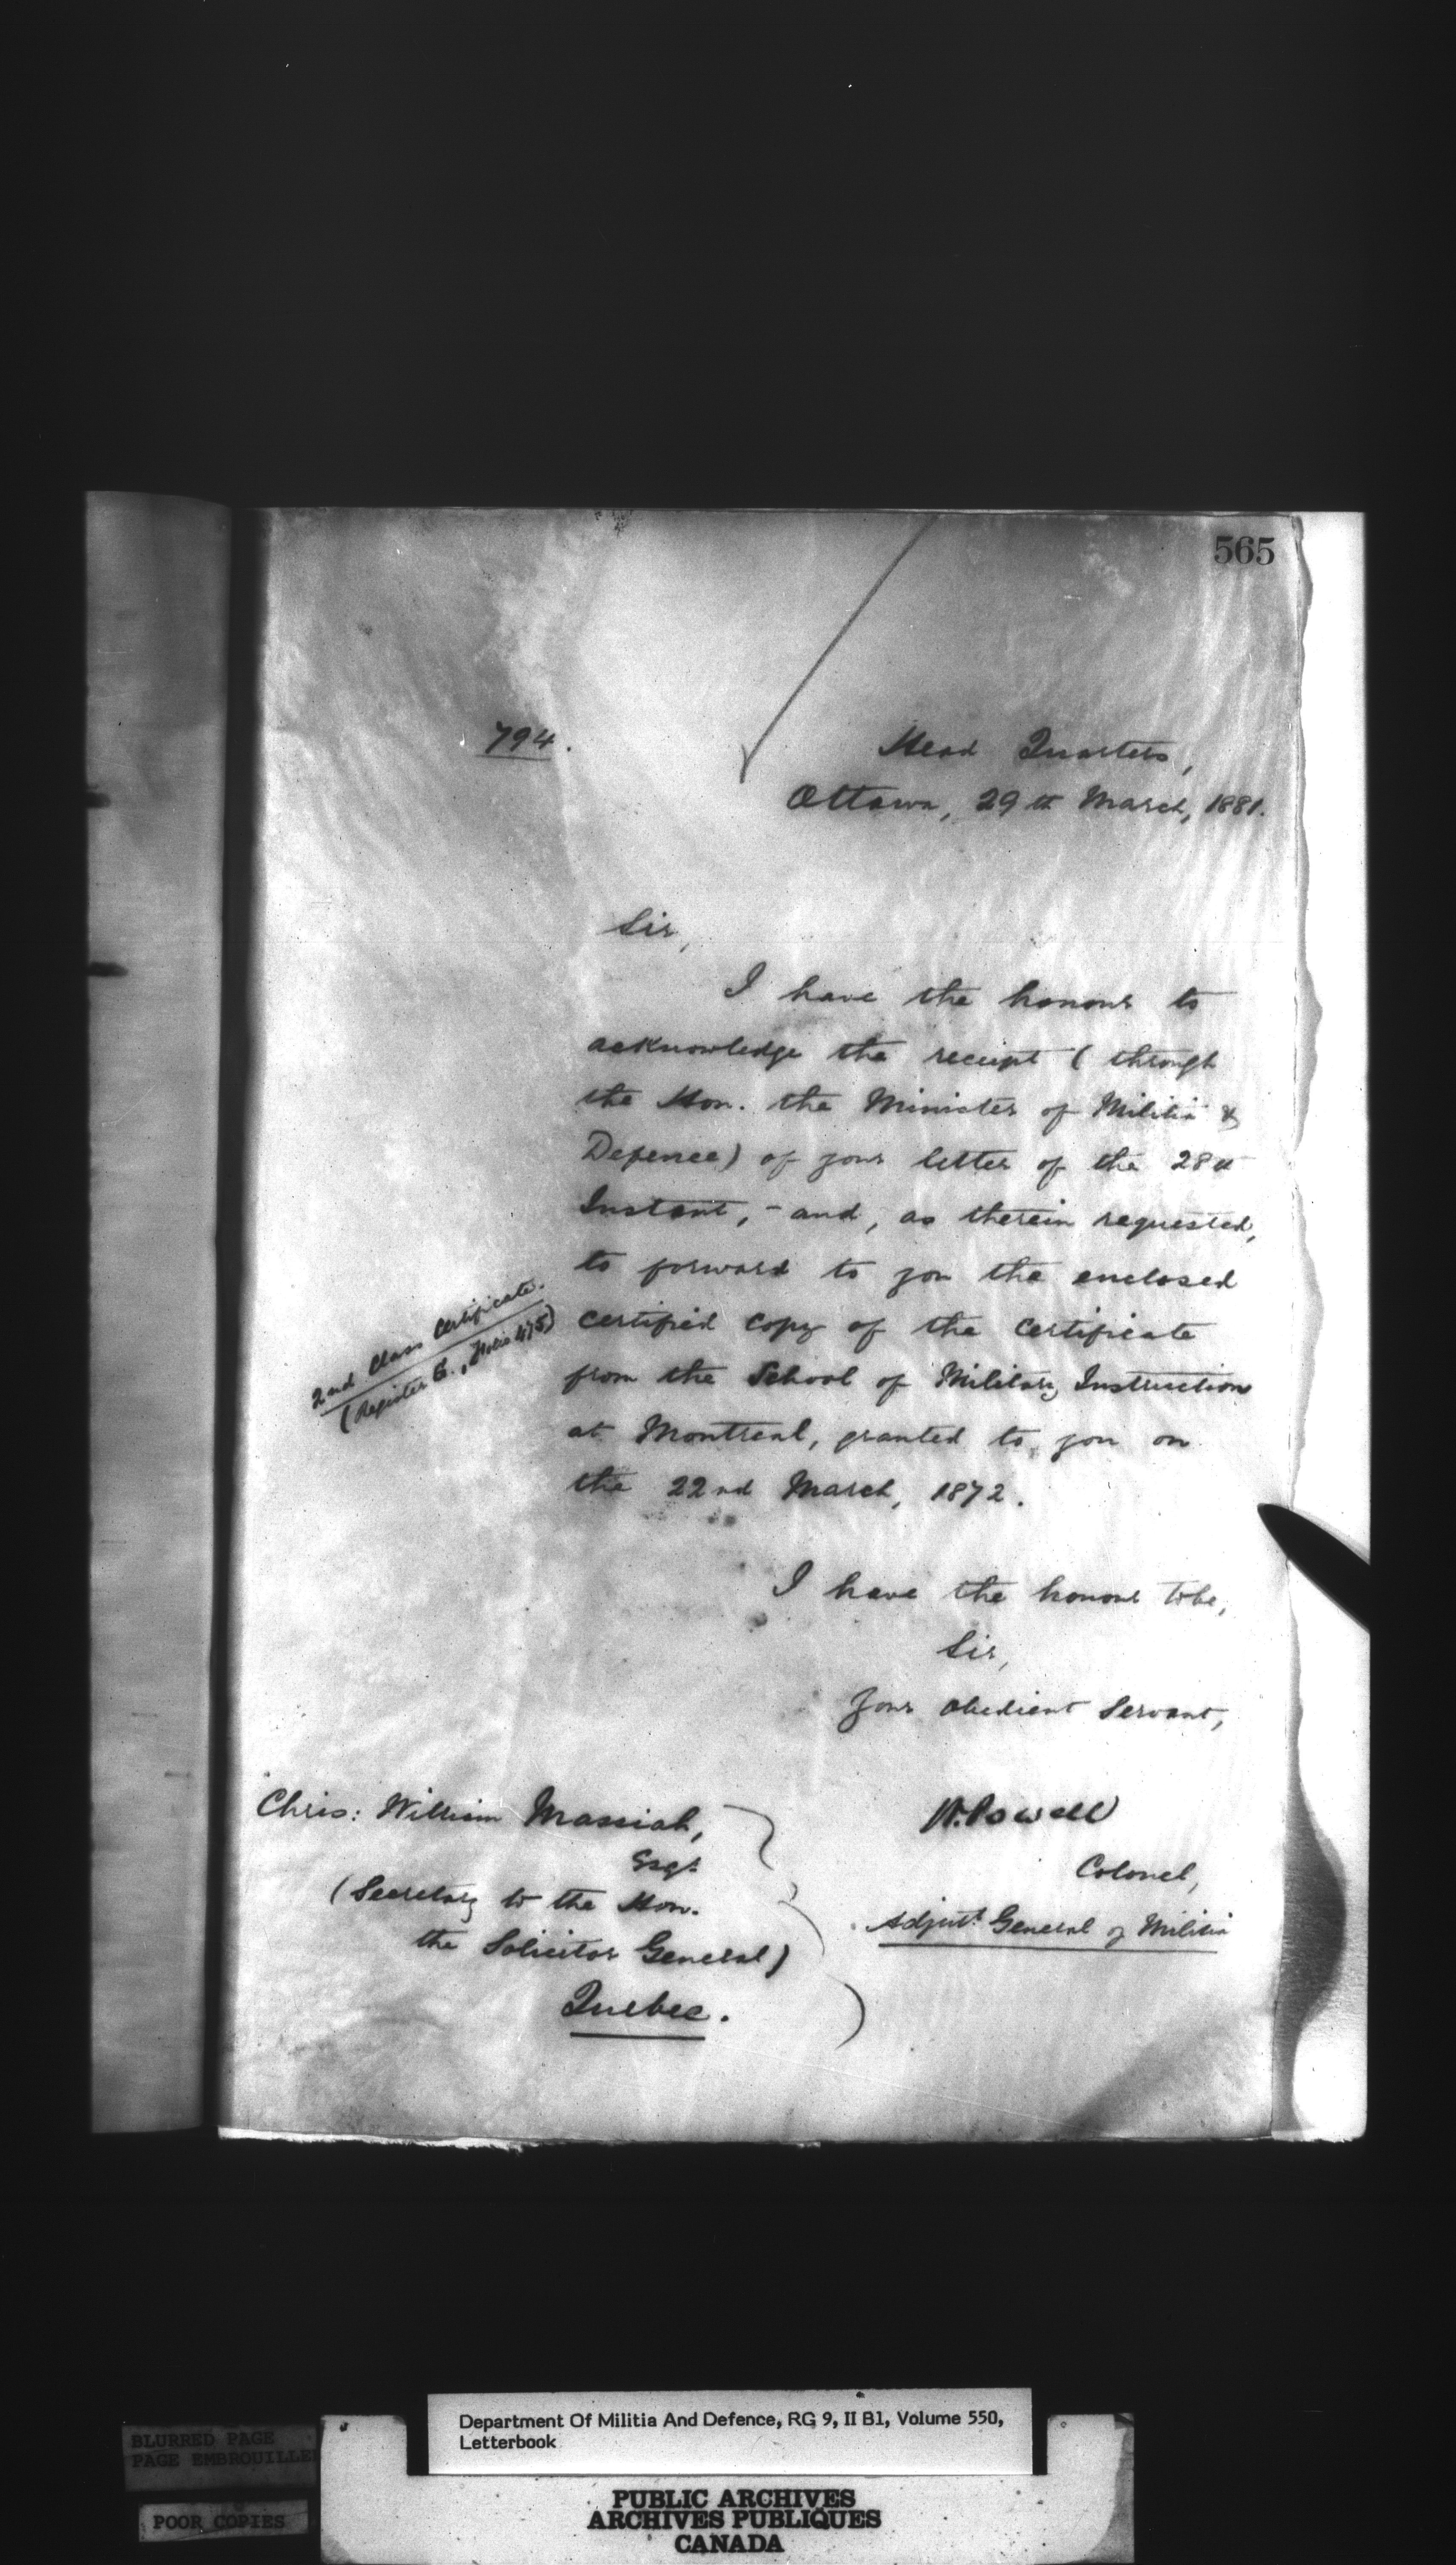 565
794.
Head Quarters,
Ottawa, 29th March, 1881.
Sir,
I have the honour to
acknowledge the receipt (through
the Hon. the Minister of Militia &
Defence) of your letter of the 28th
Instant, - and, as therein requested,
to forward to you the enclosed
certified copy of the certificate
from the School of Military Instruction
at Montreal, granted to you on
the 22nd March, 1872.
2nd Class Certificate.
(Register , Folio 475)
I have the honour to be,
Sir,
Your obedient Servant,
W. Powell
Colonel,
Adjut. General of Militia
Chris: William Massiah,
Esqr
(Secretary to the Hon.
the Solicitor General)
Quebec.
Department Of Militia And Defence, RG 9, II B1, Volume 550,
Letterbook
BLURRED PAGE
PAGE EMBROUILLEE
POOR COPIES
PUBLIC ARCHIVES
ARCHIVES PUBLIQUES
CANADA